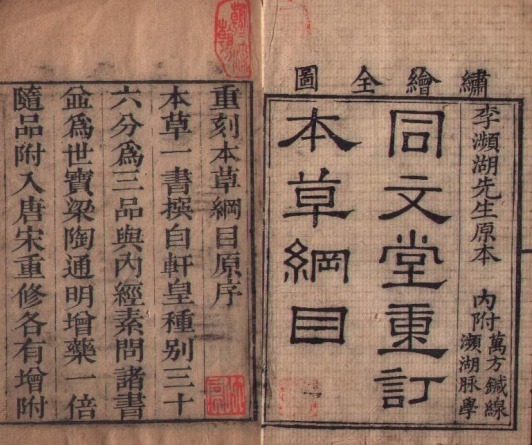 繡繪全圖
李瀕湖先生原本
內附
萬方鍼線
瀕湖脉學
同文堂重訂
本草綱目
重刻本草綱目原序
本草一書撰自軒皇種別三十
六分爲三品與內經素問諸書
並爲世寶梁陶通明增藥一倍
隨品附入唐宋重修各有增附